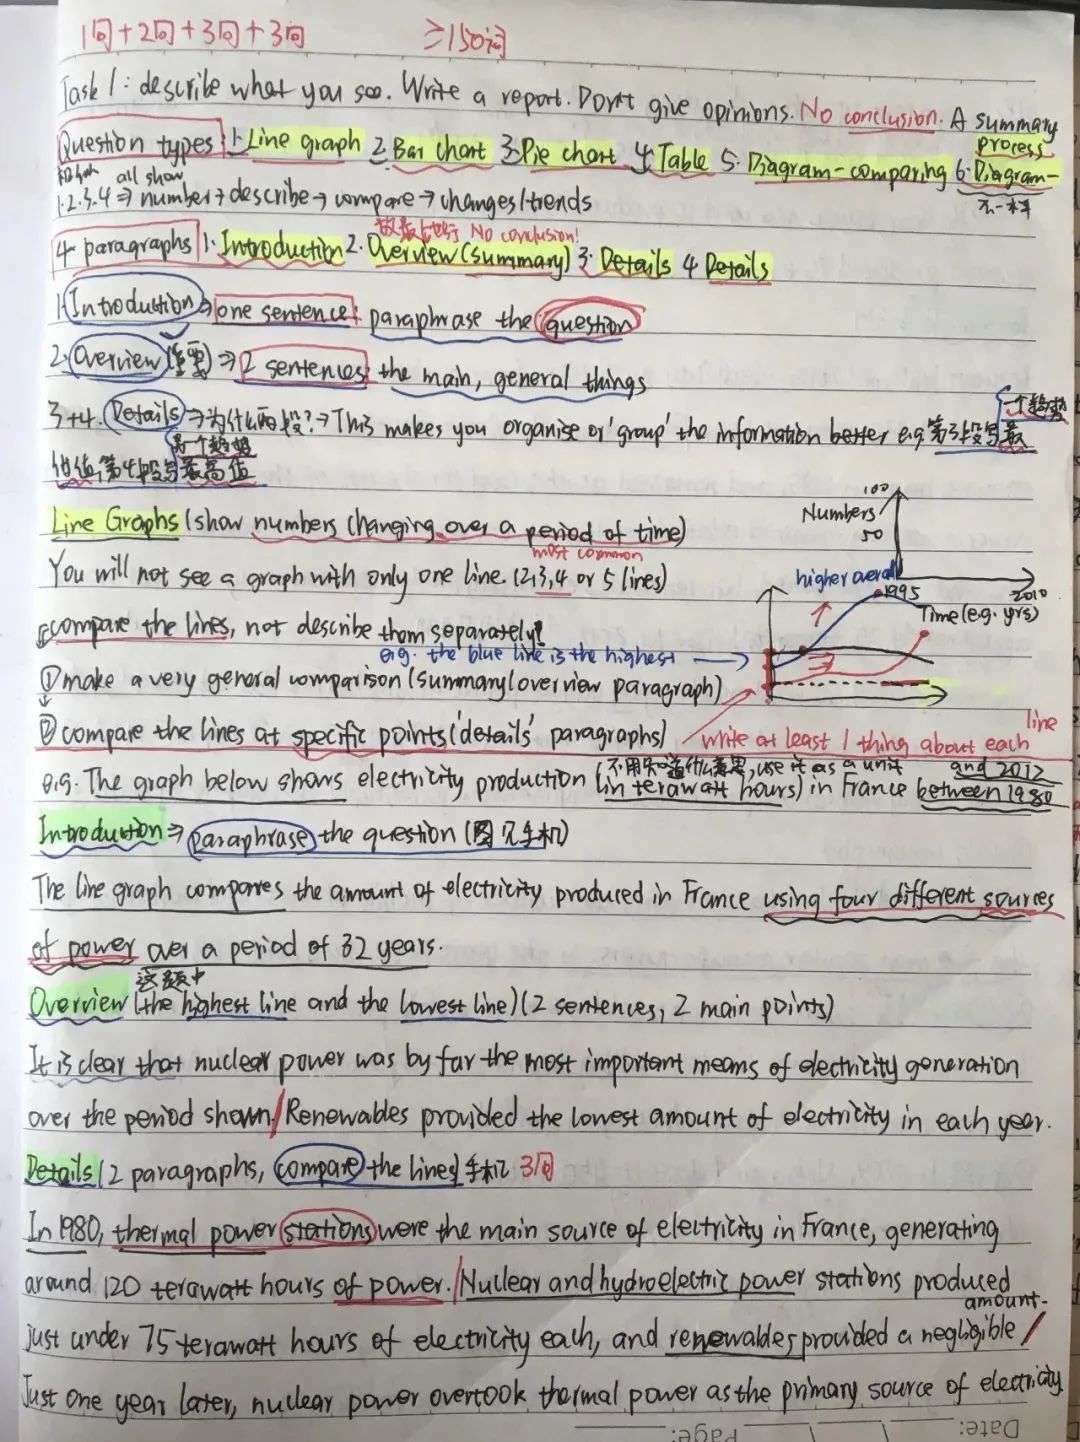 1句+2句+3句+3句 ≥150词
Task 1: describe what you see. Write a report. Don't give opinions. No conclusion. A summary
Question types: 1. Line graph 2. Bar chart 3. Pie chart 4. Table 5. Diagram-comparing 6. Diagram-
process
all show
不一样
1.2.3.4 ⇒ number → describe → compare → changes/trends
No conclusion!
4 paragraphs 1. Introduction 2. Overview (summary) 3. Details 4 Details
1. Introduction ⇒ one sentence: paraphrase the question
2. Overview (重要) ⇒ 2 sentences: the main, general things
一个趋势
3+4. Details → 为什么两段? → This makes you organise or 'group' the information better e.g. 第3段写最
另一个趋势
低值, 第4段写最高值
Line Graphs (show numbers changing over a period of time)
100
Numbers
50
most common
You will not see a graph with only one line. (2,3,4 or 5 lines)
higher overall
1995
2010
Time (e.g. yrs)
compare the lines, not describe them separately!
e.g. the blue line is the highest
① make a very general comparison (summary/overview paragraph)
② compare the lines at specific points ('details' paragraphs)
write at least 1 thing about each line
不用知道什么意思, use it as a unit
and 2012
e.g. The graph below shows electricity production (in terawatt hours) in France between 1980
Introduction ⇒ paraphrase the question (图见手机)
The line graph compares the amount of electricity produced in France using four different sources
of power over a period of 32 years.
这题中
Overview (the highest line and the lowest line) (2 sentences, 2 main points)
It is clear that nuclear power was by far the most important means of electricity generation
over the period shown/Renewables provided the lowest amount of electricity in each year.
Details (2 paragraphs, compare the lines) 手机 3句
In 1980, thermal power stations were the main source of electricity in France, generating
around 120 terawatt hours of power./Nuclear and hydroelectric power stations produced
amount.
just under 75 terawatt hours of electricity each, and renewables provided a negligible /
Just one year later, nuclear power overtook thermal power as the primary source of electricity
Page:
Date: